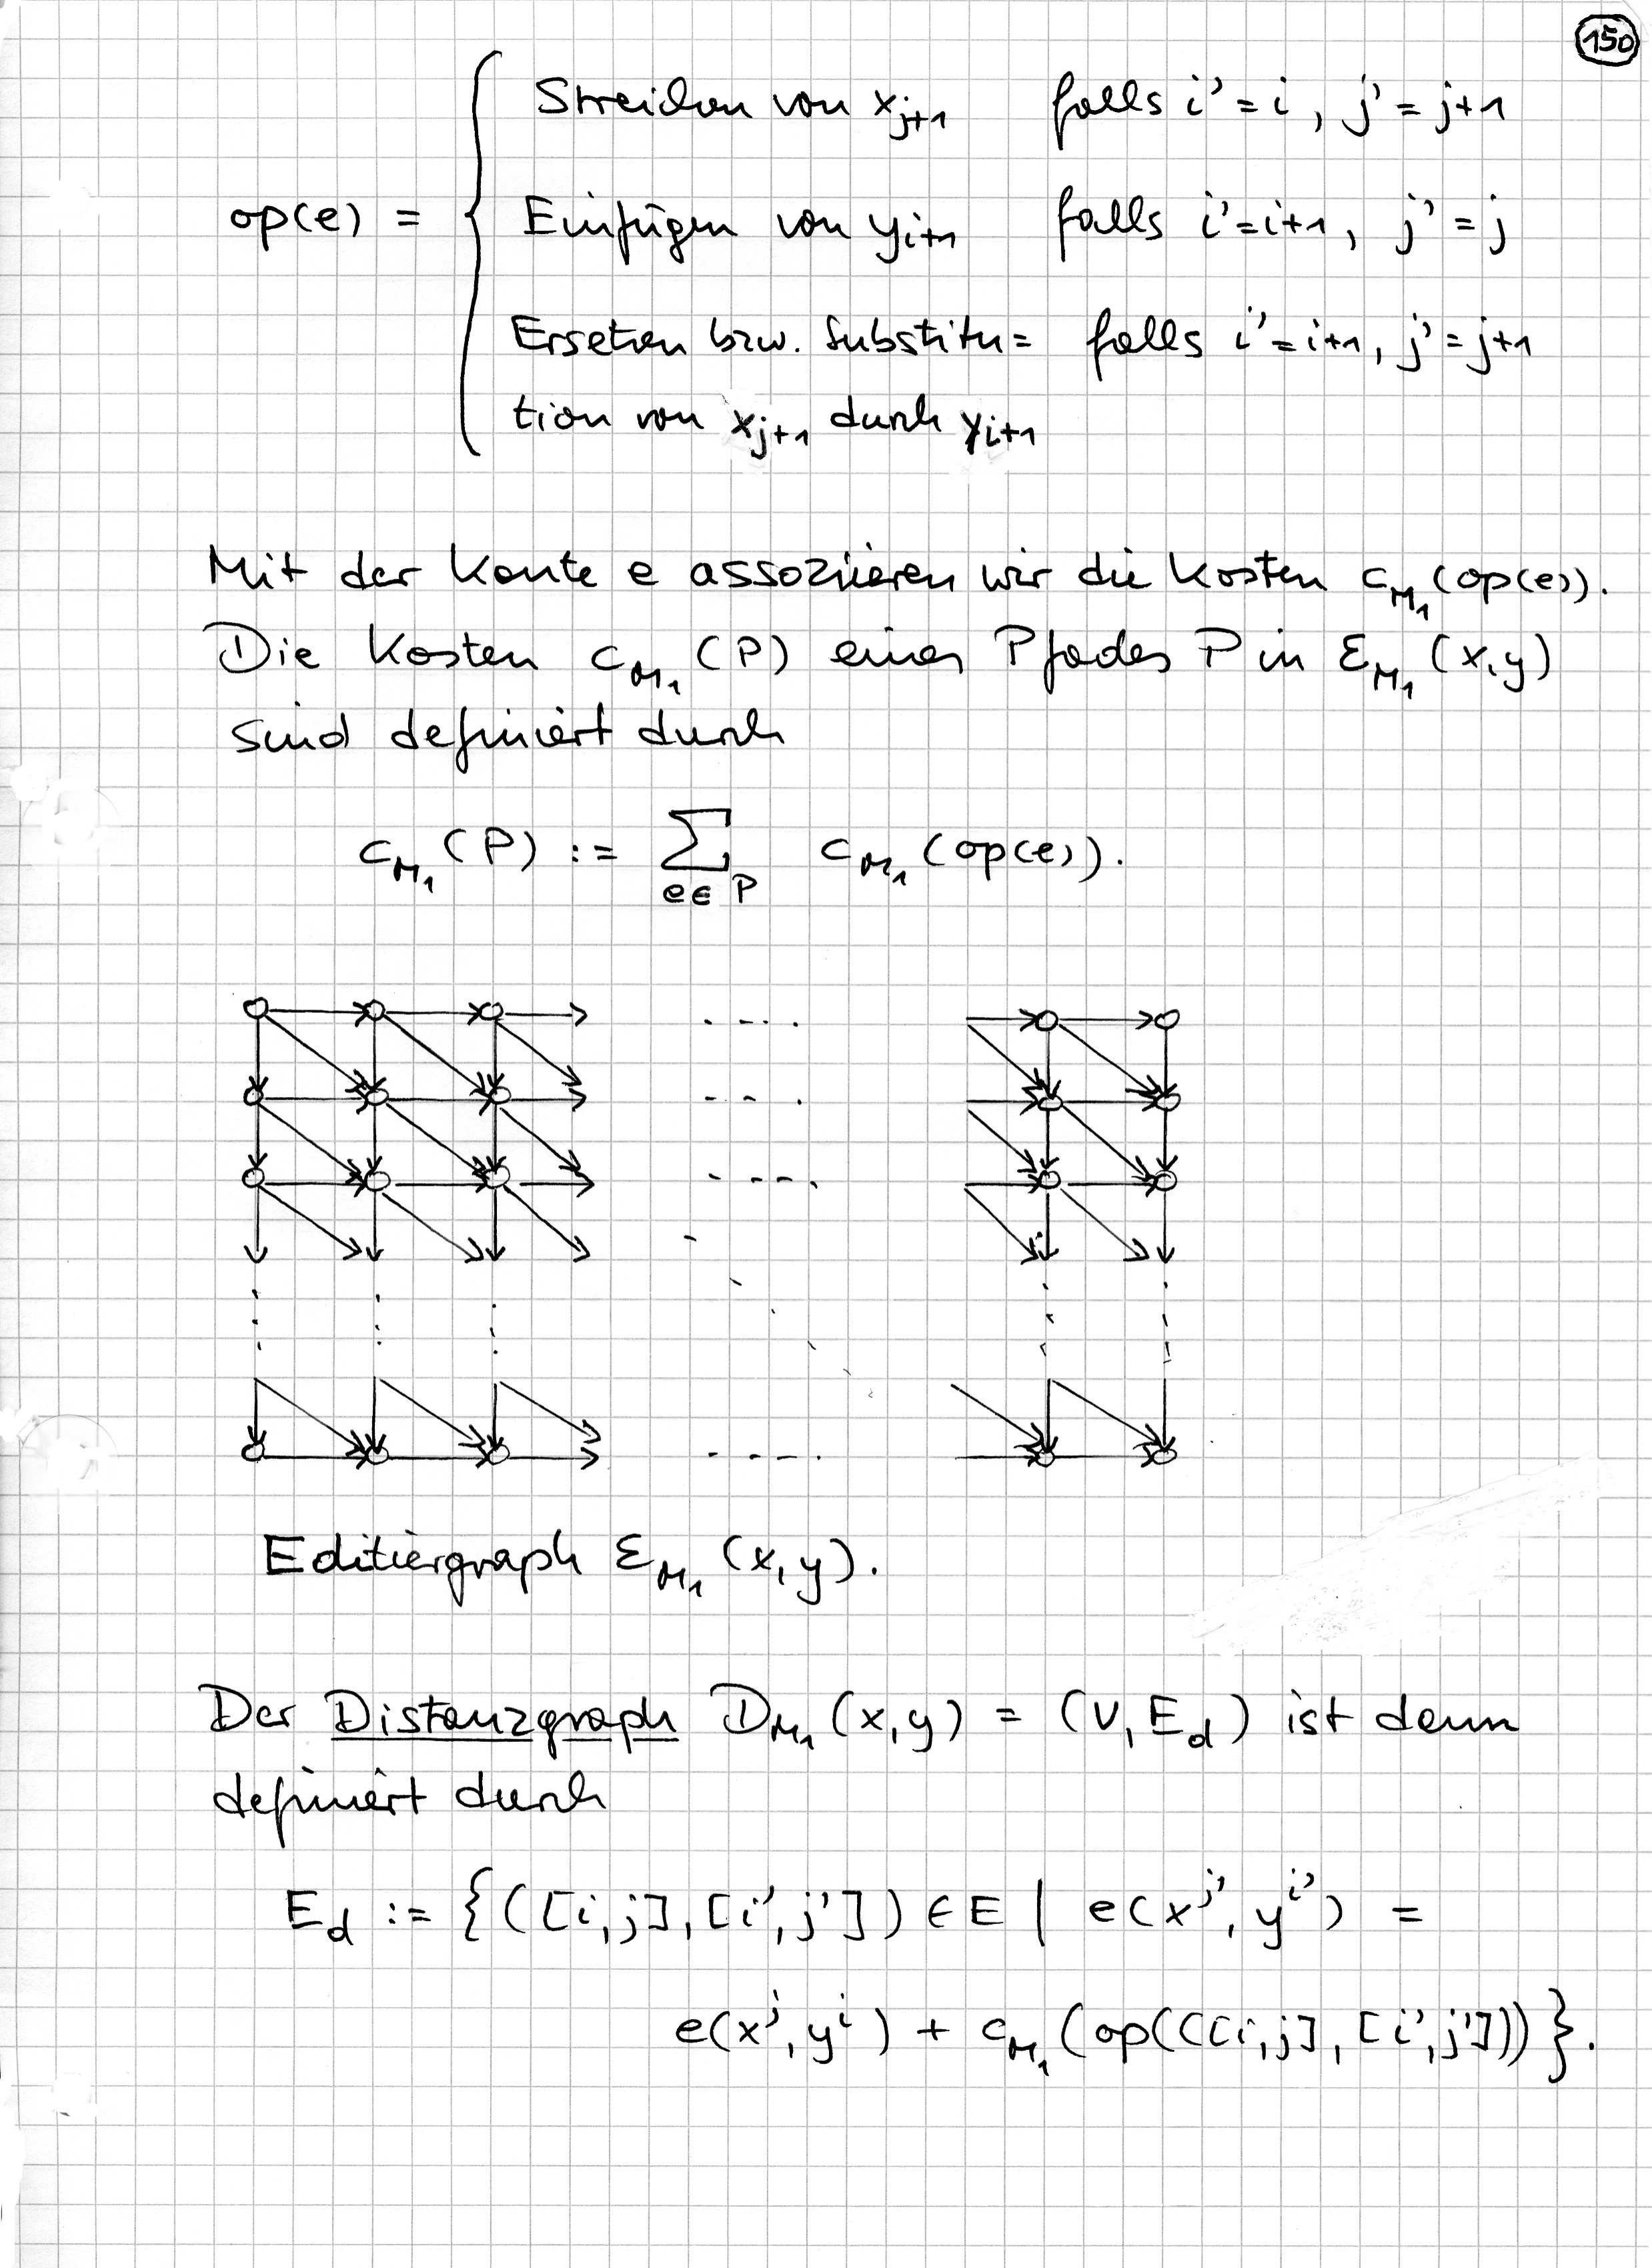 150
op(e) = { Streichen von x_{j+1} falls i' = i, j' = j+1
Einfügen von y_{i+1} falls i' = i+1, j' = j
Ersetzen bzw. Substitu= falls i' = i+1, j' = j+1
tion von x_{j+1} durch y_{i+1}
Mit der Kante e assoziieren wir die Kosten c_{M_1}(op(e)).
Die Kosten c_{M_1}(P) eines Pfades P in E_{M_1}(x,y)
sind definiert durch
c_{M_1}(P) := ∑_{e∈P} c_{M_1}(op(e)).
Editiergraph E_{M_1}(x,y).
Der Distanzgraph D_{M_1}(x,y) = (V, E_d) ist dann
definiert durch
E_d := {([i,j],[i',j']) ∈ E | e(x^{j'}, y^{i'}) =
e(x^j, y^i) + c_{M_1}(op(([i,j],[i',j']))}.